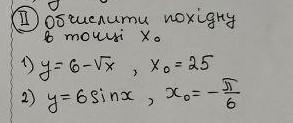 II Обчислити похідну
в точці x₀
1) y = 6 - √x , x₀ = 25
2) y = 6 sin x , x₀ = - π/6